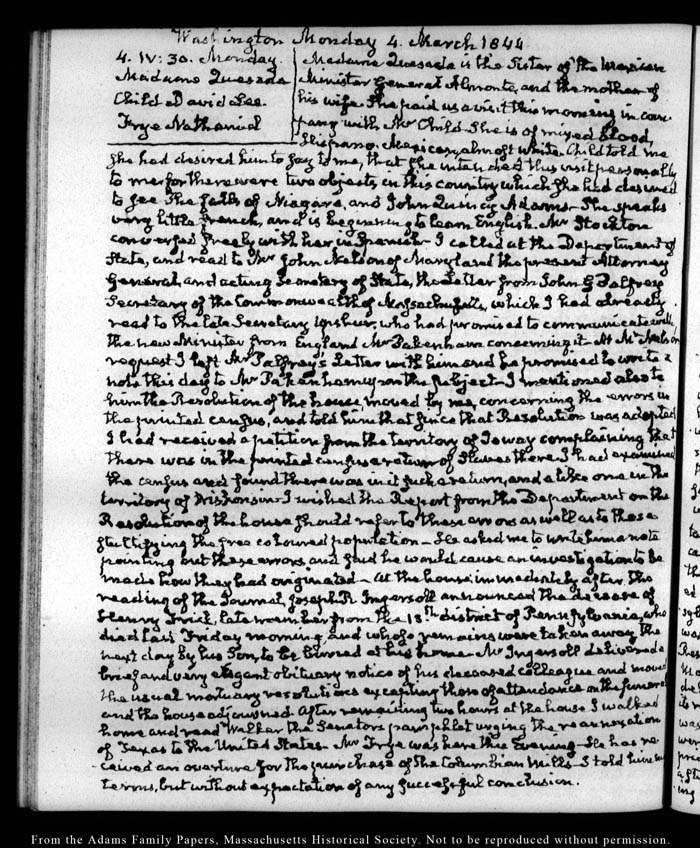 Washington Monday 4. March 1844
4. IV: 30. Monday.
Madame Quesada
Child David Lee.
Frye Nathaniel
Madame Quesada is the Sister of the Mexican
Minister General Almonte, and the mother of
his wife. She paid us a visit this morning in com-
pany with Mr Child. She is of mixed blood,
Hispano-Mexican, almost white. Child told me
She had desired him to say to me, that she intended this visit personally
to me, for there were two objects, in this country which she had desired
to see. The falls of Niagara, and John Quincy Adams. She speaks
very little French, and is beginning to learn English. Mr Stockton
conversed freely with her in Spanish. I called at the Department of
State, and read to Mr John Nelson of Maryland the present Attorney
General, and acting Secretary of State, the Letter from John G Palfrey
Secretary of the Commonwealth of Massachusetts, which I had already
read to the late Secretary Upshur, who had promised to communicate with
the new Minister from England Mr Pakenham concerning it. At Mr Nelson's
request I left Mr Palfrey's Letter with him and he promised to write a
note this day to Mr Pakenham upon the subject. I mentioned also to
him the Resolution of the house, moved by me, concerning the errors in
the printed census, and told him that since that Resolution was adopted
I had received a petition from the territory of Ioway complaining that
there was in the printed census a return of Slaves there. I had examined
the census and found there was in it such a return, and a like one in the
territory of Wisconsin. I wished the Report from the Department on the
Resolution of the house should refer to these errors as well as to those
stultifying the free coloured population. He asked me to write him a note
pointing out these errors and said he would cause an investigation to be
made how they had originated. At the house immediately after the
reading of the Journal, Joseph R. Ingersoll announced the decease of
Henry Frick, late member from the 13th district of Pennsylvania, who
died last Friday morning, and whose remains were taken away the
next day by his Son, to be buried at his home. Mr Ingersoll delivered a
brief and very elegant obituary notice of his deceased colleague and moved
the usual mortuary resolutions excepting those of attendance on the funeral
and the house adjourned. After remaining two hours at the house I walked
home and read Walker the Senator's pamphlet urging the reannexation
of Texas to the United States. Mr Frye was here this Evening. He has re-
ceived an overture for the purchase of the Columbian Mills. I told him my
terms, but without expectation of any successful conclusion.
From the Adams Family Papers, Massachusetts Historical Society. Not to be reproduced without permission.